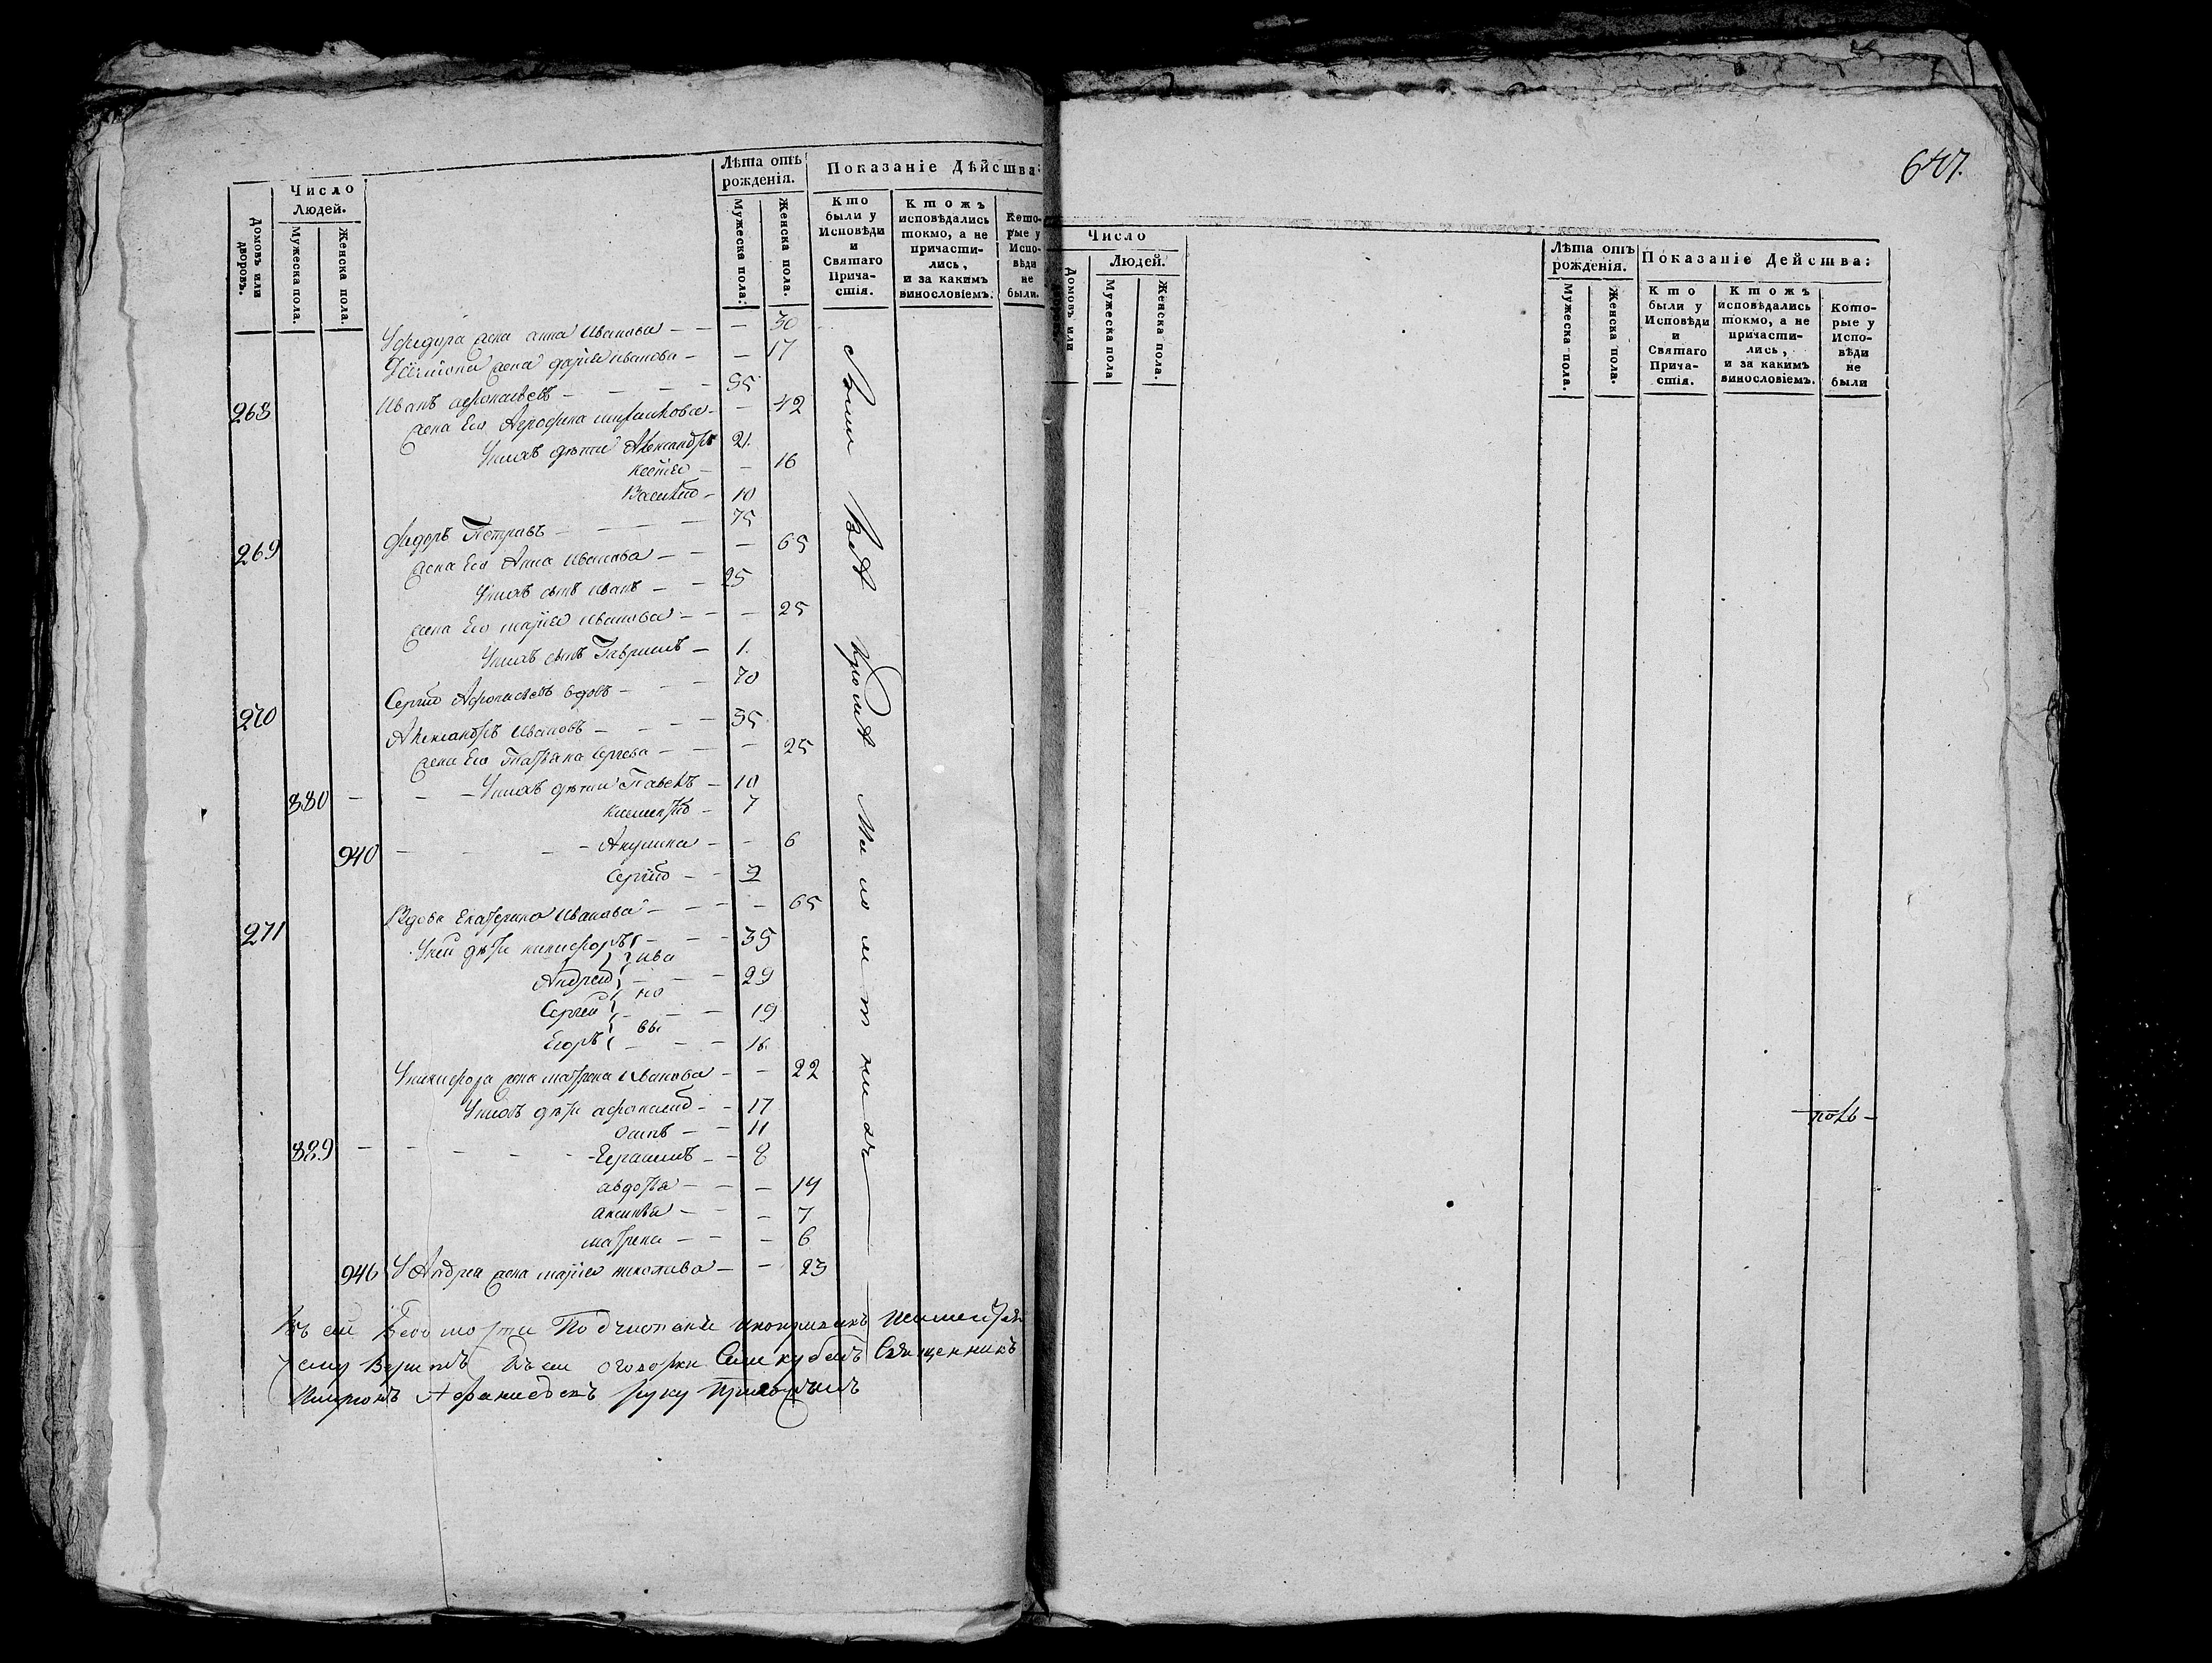 Домовъ или дворовъ.
Число Людей.
Мужеска пола.
Женска пола.
Лѣта отъ рожденія.
Мужеска пола.
Женска пола.
Показаніе Дѣйства:
Кто были у Исповѣди и Святаго Прича-стія.
Ктожъ исповѣдались токмо, а не причасти-лись, и за какимъ винословіемъ.
Кото-рые у Испо-вѣди не были.
У федора жена анна Иванова — — 30
жена дарья иванова — — 17
268 Иванъ афонасьевъ — — — 55
жена Его Агрофена — — 42
У нихъ дѣти Александръ 21
— — 16
Василій — 10
269 федоръ Петровъ — — — 75
жена Его Анна Иванова — — — 65
У нихъ сынъ иванъ — — 25
жена Его марья иванова — — — 25
У нихъ сынъ Гаврилъ — 1.
270 Сергій Афонасьевъ вдовъ — — — 70
Александръ Ивановъ — — — 35
жена Его Татьяна сергѣева — — — 25
880 — — — У нихъ дѣти Павелъ — 10
— 7
940 — — — Акулина — — 6
Сергій — — 2
271 Вдова Екатерина Иванова — — — — 65
У ней дѣти никифоръ — — — 35
Андрей — — — 29
Сергей — — — 19
Егоръ — — — 16.
ива
но
вы
У никифора жена матрена Иванова — — 22
У нихъ дѣти афонасій — — 17
осипъ — — 11
889 — — — — — Герасимъ — — 8
авдотья — — — 14
аксинья — — — 7
матрена — — — 6
946 У Андрея жена марья николаева — — 23
были Всѣ кромѣ Малолѣтнихъ
Въ сей Ведомости
Въ сей оговорки Священникъ
Афанасьевъ руку приложилъ
647.
Домовъ или
Число Людей.
Мужеска пола
Женска пола.
Лѣта отъ рожденія.
Мужеска пола.
Женска пола.
Показаніе Действа:
Кто были у Исповѣди и Святаго Прича-стія.
Ктожъ исповѣдались токмо, а не причасти-лись, и за какимъ винословіемъ.
Кото-рые у Испо-вѣди не были